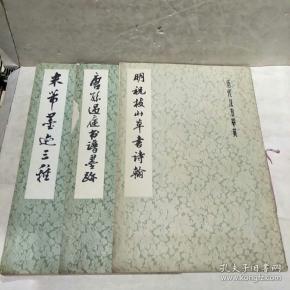 米芾墨迹三种
唐孙过庭书谱墨迹
明祝枝山草书诗翰
历代法书萃英
孔夫子旧书网